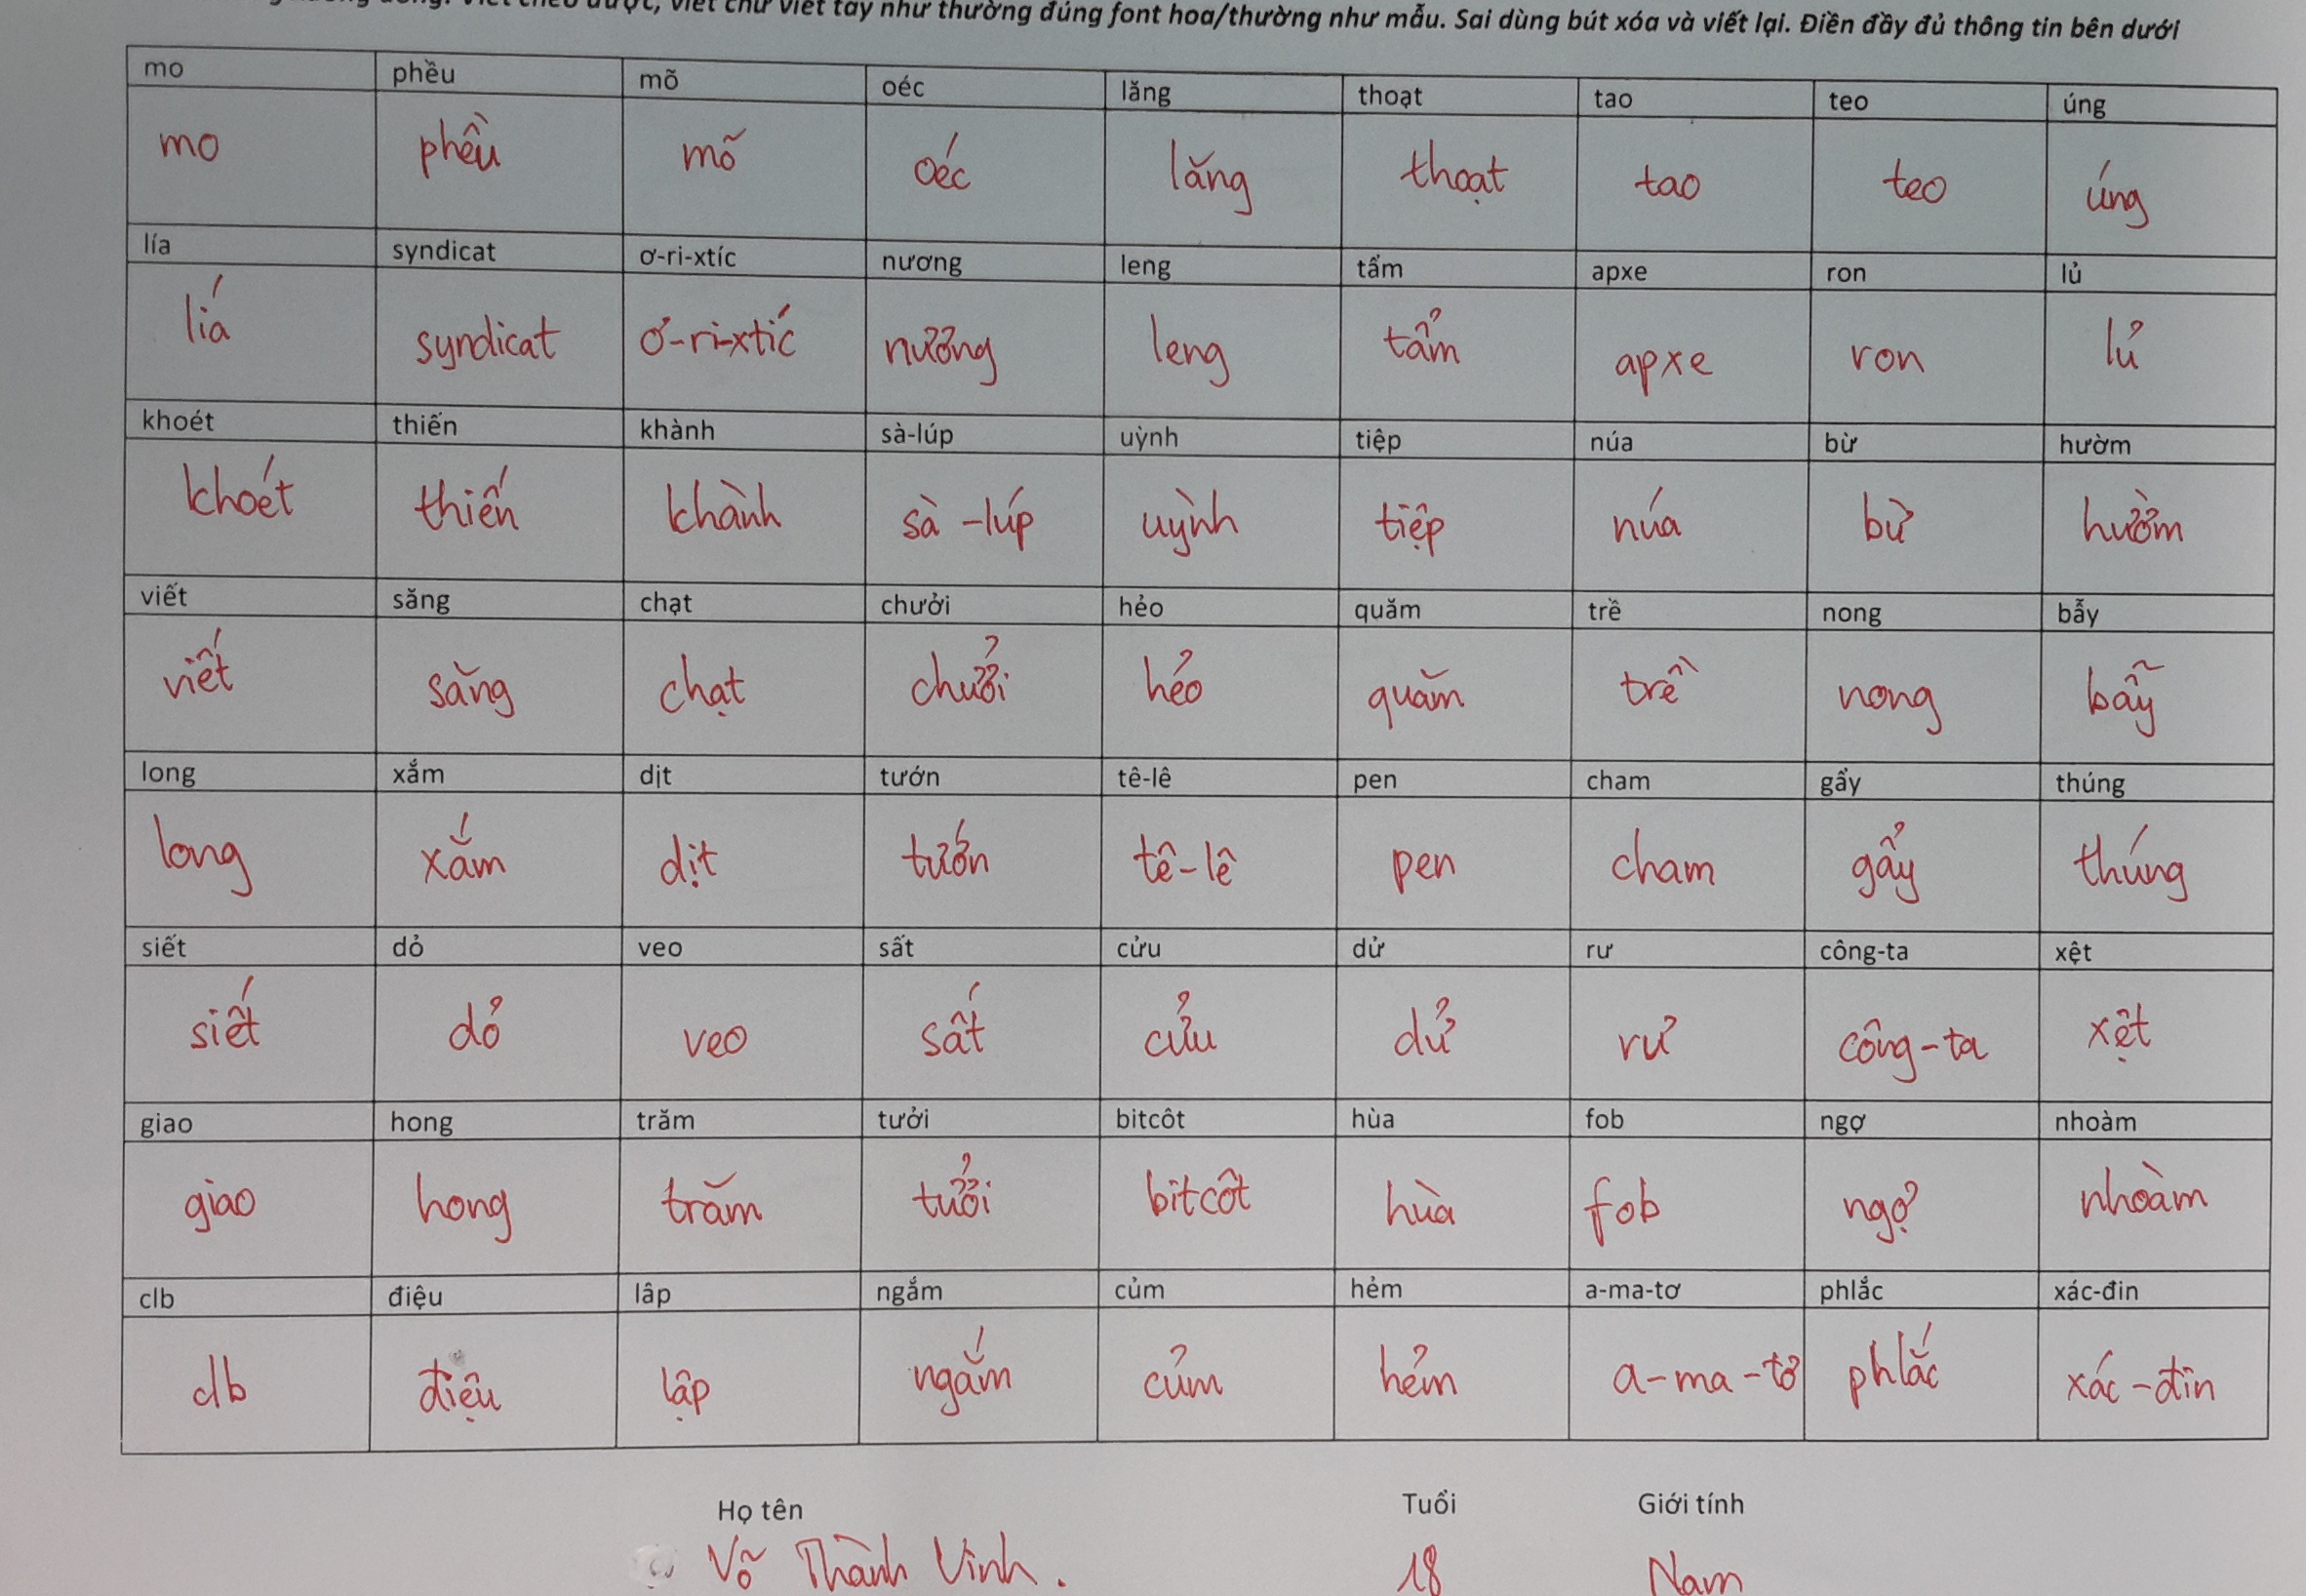 viết theo được, viết chữ viết tay như thường đúng font hoa/thường như mẫu. Sai dùng bút xóa và viết lại. Điền đầy đủ thông tin bên dưới
mo phều mõ oéc lăng thoạt tao teo úng
mo phều mõ oéc lăng thoạt tao teo úng
lía syndicat ơ-ri-xtíc nương leng tẩm apxe ron lủ
lía syndicat ơ-ri-xtíc nương leng tẩm apxe ron lủ
khoét thiến khành sà-lúp uỳnh tiệp núa bừ hườm
khoét thiến khành sà-lúp uỳnh tiệp núa bừ hườm
viết săng chạt chưởi hẻo quăm trề nong bẫy
viết săng chạt chưởi hẻo quăm trề nong bẫy
long xắm dịt tướn tê-lê pen cham gẩy thúng
long xắm dịt tướn tê-lê pen cham gẩy thúng
siết dỏ veo sất cửu dử rư công-ta xệt
siết dỏ veo sất cửu dử rư công-ta xệt
giao hong trăm tưởi bitcôt hùa fob ngợ nhoàm
giao hong trăm tưởi bitcôt hùa fob ngợ nhoàm
clb điệu lâp ngắm củm hẻm a-ma-tơ phlắc xác-đin
clb điệu lập ngắm củm hẻm a-ma-tơ phlắc xác-đin
Họ tên Tuổi Giới tính
Võ Thành Vinh. 18 Nam